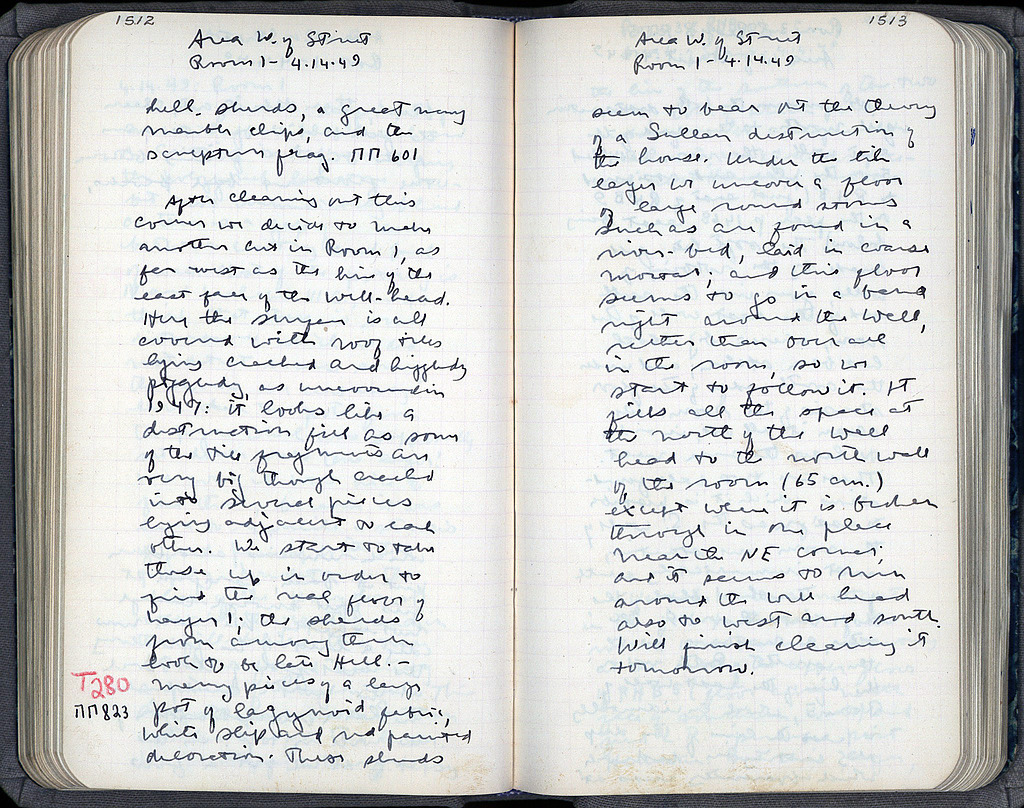 1512
Area W. of Street
Room 1 - 4.14.49
hell. sherds, a great many
marble chips, and the
sculpture frag. ΠΠ 601
After cleaning out this
corner we decide to make
another cut in Room 1, as
far west as the line of the
east face of the well-head.
Here the surface is all
covered with roof tiles
lying cracked and higgledy
piggledy, as uncovered in
1947: it looks like a
destruction fill as some
of the tile fragments are
very big though cracked
into several pieces
lying adjacent to each
other. We start to take
these up in order to
find the real floor of
layer 1; the sherds
from among them
look to be late Hell. -
T280
many pieces of a large
ΠΠ 823
pot of lagynoid fabric,
white slip and red painted
decoration. These sherds
1513
Area W. of Street
Room 1 - 4.14.49
seem to bear out the theory
of a Sullan destruction of
the house. Under the tile
layer we uncover a floor
of large round stones
such as are found in a
river-bed, laid in coarse
mortar; and this floor
seems to go in a band
right around the well,
rather than over all
in the room, so we
start to follow it. It
fills all the space at
the north of the well
head to the north wall
of the room (65 cm.)
except where it is broken
through in one place
near the NE corner;
and it seems to run
around the well head
also to west and south.
Will finish clearing it
tomorrow.